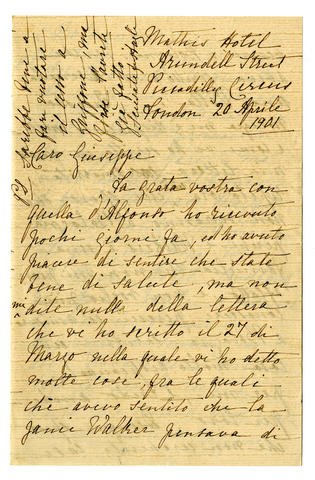 Mathis Hotel
Arundell Street
Piccadilly Circus
London 20 Aprile
1901
Caro Giuseppe
La grata vostra con
quella d'Alfonso ho ricevuto
pochi giorni fa, ed ho avuto
piacere di sentire che state
bene di salute, ma non
mi dite nulla della lettera
che vi ho scritto il 27 di
Marzo nella quale vi ho detto
molte cose, fra le quali
che avevo sentito che la
Janie Walker pensava di
PS Sarebbe bene a
fare mettere
il vaso a